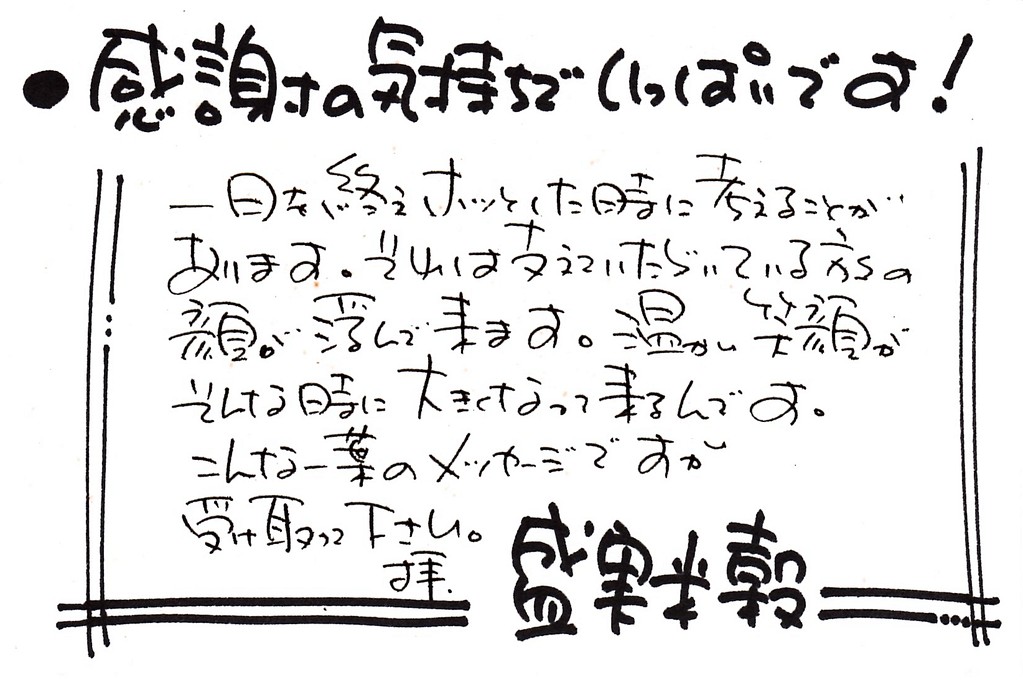 ●感謝の気持ちでいっぱいです!
一日を終えホッとした時に考えることが
あります。それは支えていただいている方の
顔が浮んで来ます。温かい笑顔が
そんな時に大きくなって来るんです。
こんな一葉のメッセージですが
受け取って下さい。
拝.
盛果米穀